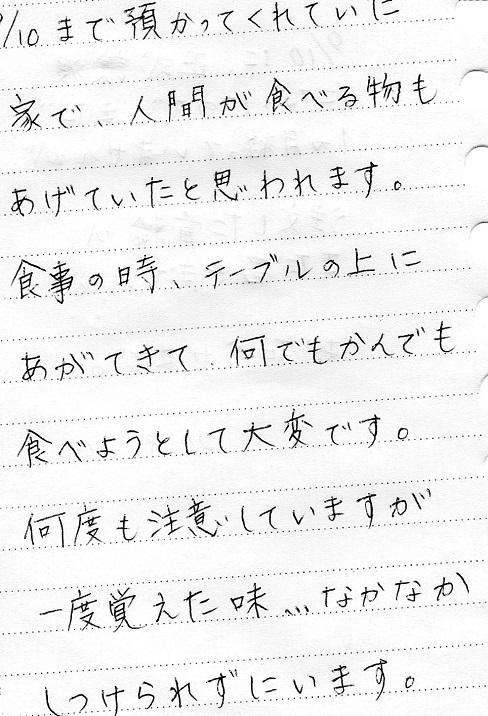 /10まで預かってくれていた
家で、人間が食べる物も
あげていたと思われます。
食事の時、テーブルの上に
あがてきて 何でもかんでも
食べようとして大変です。
何度も注意していますが
一度覚えた味… なかなか
しつけられずにいます。